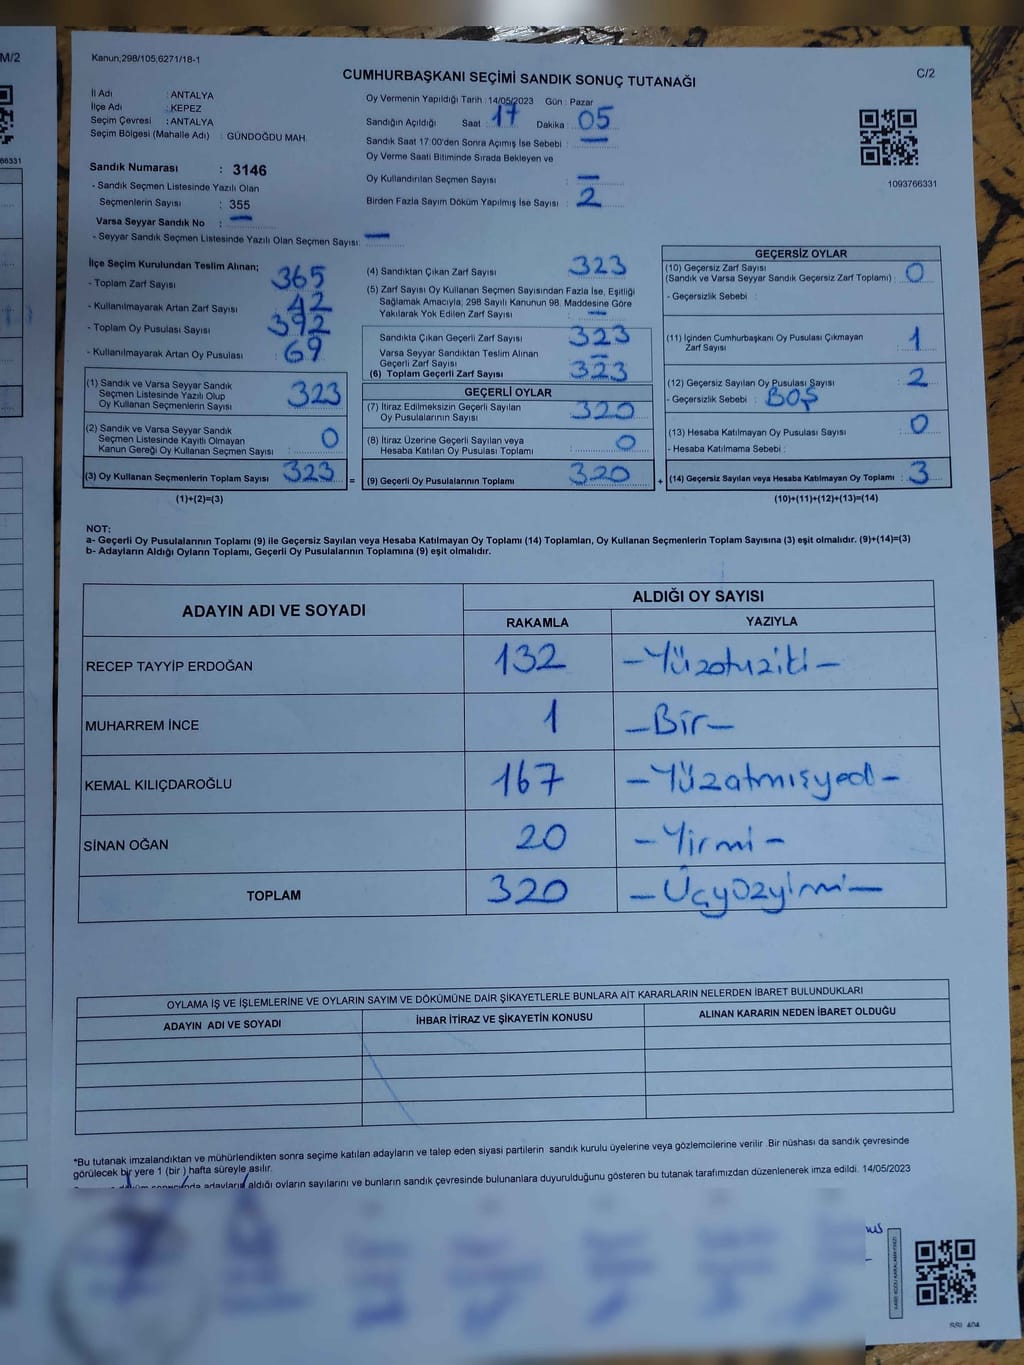 M/2
66331
Kanun;298/105,6271/18-1
CUMHURBAŞKANI SEÇİMİ SANDIK SONUÇ TUTANAĞI
C/2
İl Adı : ANTALYA
İlçe Adı : KEPEZ
Seçim Çevresi : ANTALYA
Seçim Bölgesi (Mahalle Adı) : GÜNDOĞDU MAH.
Oy Vermenin Yapıldığı Tarih : 14/05/2023 Gün : Pazar
Sandığın Açıldığı Saat : 17 Dakika : 05
Sandık Saat 17:00'den Sonra Açımış İse Sebebi : —
Oy Verme Saati Bitiminde Sırada Bekleyen ve
Oy Kullandırılan Seçmen Sayısı : —
Birden Fazla Sayım Döküm Yapılmış İse Sayısı : 2
1093766331
Sandık Numarası : 3146
- Sandık Seçmen Listesinde Yazılı Olan
Seçmenlerin Sayısı : 355
Varsa Seyyar Sandık No : —
- Seyyar Sandık Seçmen Listesinde Yazılı Olan Seçmen Sayısı: —
İlçe Seçim Kurulundan Teslim Alınan;
- Toplam Zarf Sayısı : 365
- Kullanılmayarak Artan Zarf Sayısı : 42
- Toplam Oy Pusulası Sayısı : 392
- Kullanılmayarak Artan Oy Pusulası : 69
(1) Sandık ve Varsa Seyyar Sandık
Seçmen Listesinde Yazılı Olup
Oy Kullanan Seçmenlerin Sayısı : 323
(2) Sandık ve Varsa Seyyar Sandık
Seçmen Listesinde Kayıtlı Olmayan
Kanun Gereği Oy Kullanan Seçmen Sayısı : 0
(3) Oy Kullanan Seçmenlerin Toplam Sayısı : 323 =
(1)+(2)=(3)
(4) Sandıktan Çıkan Zarf Sayısı : 323
(5) Zarf Sayısı Oy Kullanan Seçmen Sayısından Fazla İse, Eşitliği
Sağlamak Amacıyla, 298 Sayılı Kanunun 98. Maddesine Göre
Yakılarak Yok Edilen Zarf Sayısı : —
Sandıkta Çıkan Geçerli Zarf Sayısı : 323
Varsa Seyyar Sandıktan Teslim Alınan
Geçerli Zarf Sayısı : —
(6) Toplam Geçerli Zarf Sayısı : 323
GEÇERLİ OYLAR
(7) İtiraz Edilmeksizin Geçerli Sayılan
Oy Pusulalarının Sayısı : 320
(8) İtiraz Üzerine Geçerli Sayılan veya
Hesaba Katılan Oy Pusulası Toplamı : 0
(9) Geçerli Oy Pusulalarının Toplamı : 320 +
GEÇERSİZ OYLAR
(10) Geçersiz Zarf Sayısı
(Sandık ve Varsa Seyyar Sandık Geçersiz Zarf Toplamı) : 0
- Geçersizlik Sebebi :
(11) İçinden Cumhurbaşkanı Oy Pusulası Çıkmayan
Zarf Sayısı : 1
(12) Geçersiz Sayılan Oy Pusulası Sayısı : 2
- Geçersizlik Sebebi : BOŞ
(13) Hesaba Katılmayan Oy Pusulası Sayısı : 0
- Hesaba Katılmama Sebebi :
(14) Geçersiz Sayılan veya Hesaba Katılmayan Oy Toplamı : 3
(10)+(11)+(12)+(13)=(14)
NOT:
a- Geçerli Oy Pusulalarının Toplamı (9) ile Geçersiz Sayılan veya Hesaba Katılmayan Oy Toplamı (14) Toplamları, Oy Kullanan Seçmenlerin Toplam Sayısına (3) eşit olmalıdır. (9)+(14)=(3)
b- Adayların Aldığı Oyların Toplamı, Geçerli Oy Pusulalarının Toplamına (9) eşit olmalıdır.
ADAYIN ADI VE SOYADI ALDIĞI OY SAYISI
RAKAMLA YAZIYLA
RECEP TAYYİP ERDOĞAN 132 -Yüzotuziki-
MUHARREM İNCE 1 -Bir-
KEMAL KILIÇDAROĞLU 167 -Yüzatmışyedi-
SİNAN OĞAN 20 -Yirmi-
TOPLAM 320 -Üçyüzyirmi-
OYLAMA İŞ VE İŞLEMLERİNE VE OYLARIN SAYIM VE DÖKÜMÜNE DAİR ŞİKAYETLERLE BUNLARA AİT KARARLARIN NELERDEN İBARET BULUNDUKLARI
ADAYIN ADI VE SOYADI İHBAR İTİRAZ VE ŞİKAYETİN KONUSU ALINAN KARARIN NEDEN İBARET OLDUĞU
*Bu tutanak imzalandıktan ve mühürlendikten sonra seçime katılan adayların ve talep eden siyasi partilerin sandık kurulu üyelerine veya gözlemcilerine verilir. Bir nüshası da sandık çevresinde
görülecek bir yere 1 (bir ) hafta süreyle asılır.
adayların aldığı oyların sayılarını ve bunların sandık çevresinde bulunanlara duyurulduğunu gösteren bu tutanak tarafımızdan düzenlenerek imza edildi. 14/05/2023